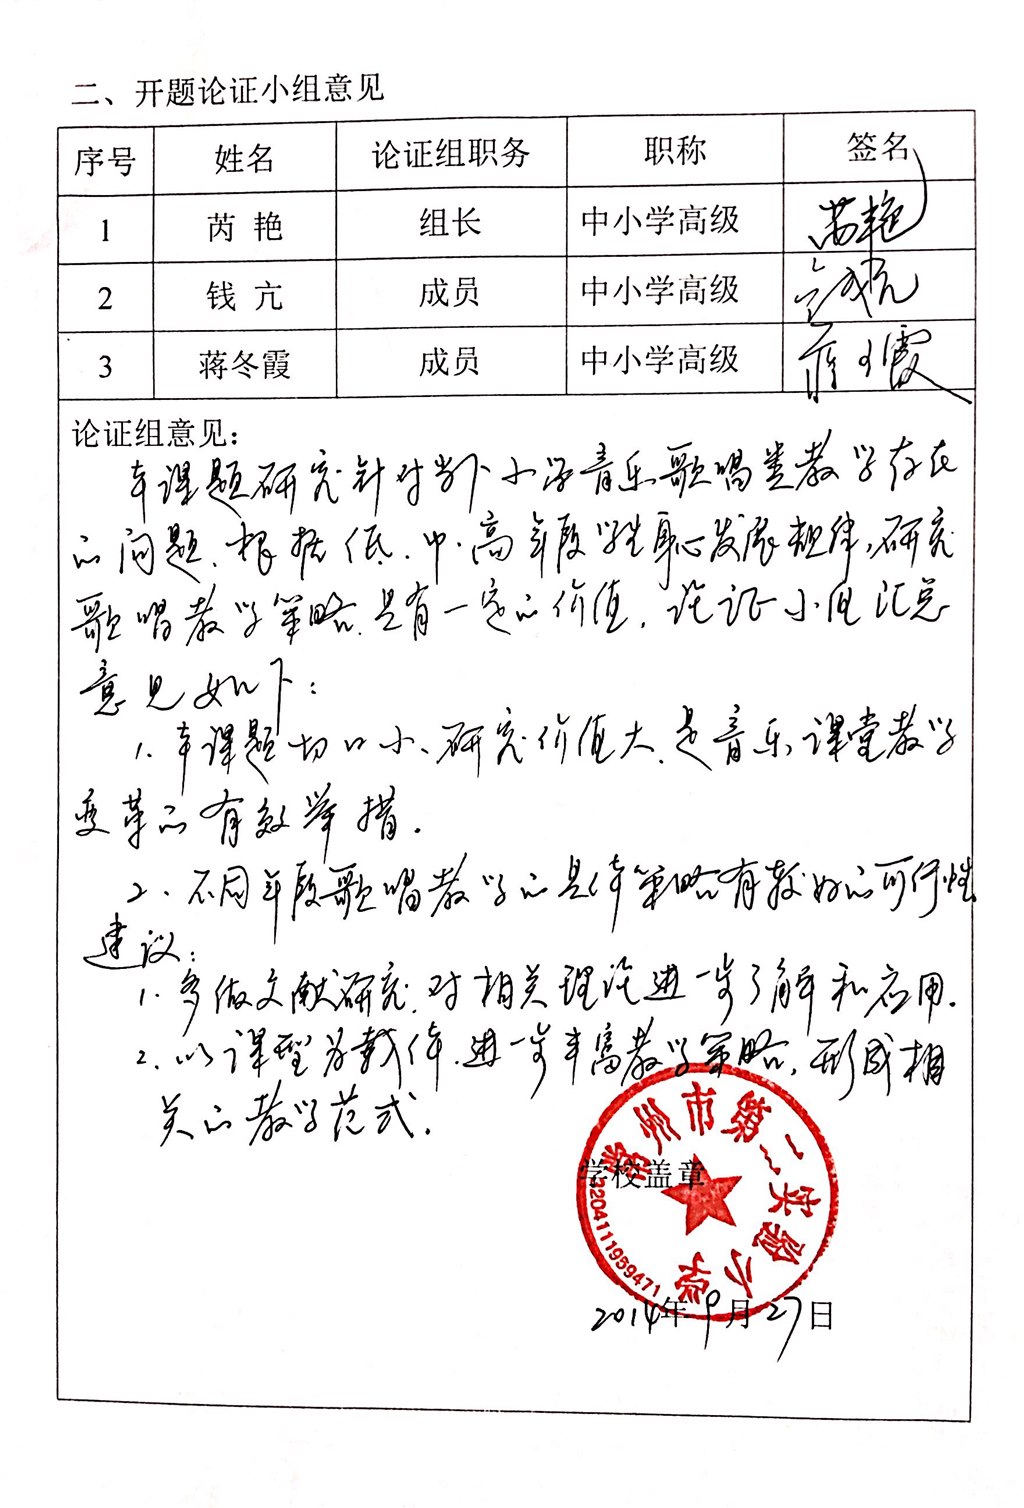 二、开题论证小组意见
序号 姓名 论证组职务 职称 签名
1 芮艳 组长 中小学高级 芮艳
2 钱亢 成员 中小学高级 钱亢
3 蒋冬霞 成员 中小学高级 蒋冬霞
论证组意见：
本课题研究针对当下小学音乐歌唱类教学存在
的问题，根据低、中、高年段学生身心发展规律，研究
歌唱教学策略，是有一定的价值，论证小组汇总
意见如下：
1. 本课题切口小、研究价值大，是音乐课堂教学
变革的有效举措。
2. 不同年段歌唱教学的具体策略有较好的可行性
建议：
1. 多做文献研究，对相关理论进一步了解和应用。
2. 以课型为载体，进一步丰富教学策略，形成相
关的教学范式。
学校盖章
常州市第二实验小学
3204111959471
2014年9月27日